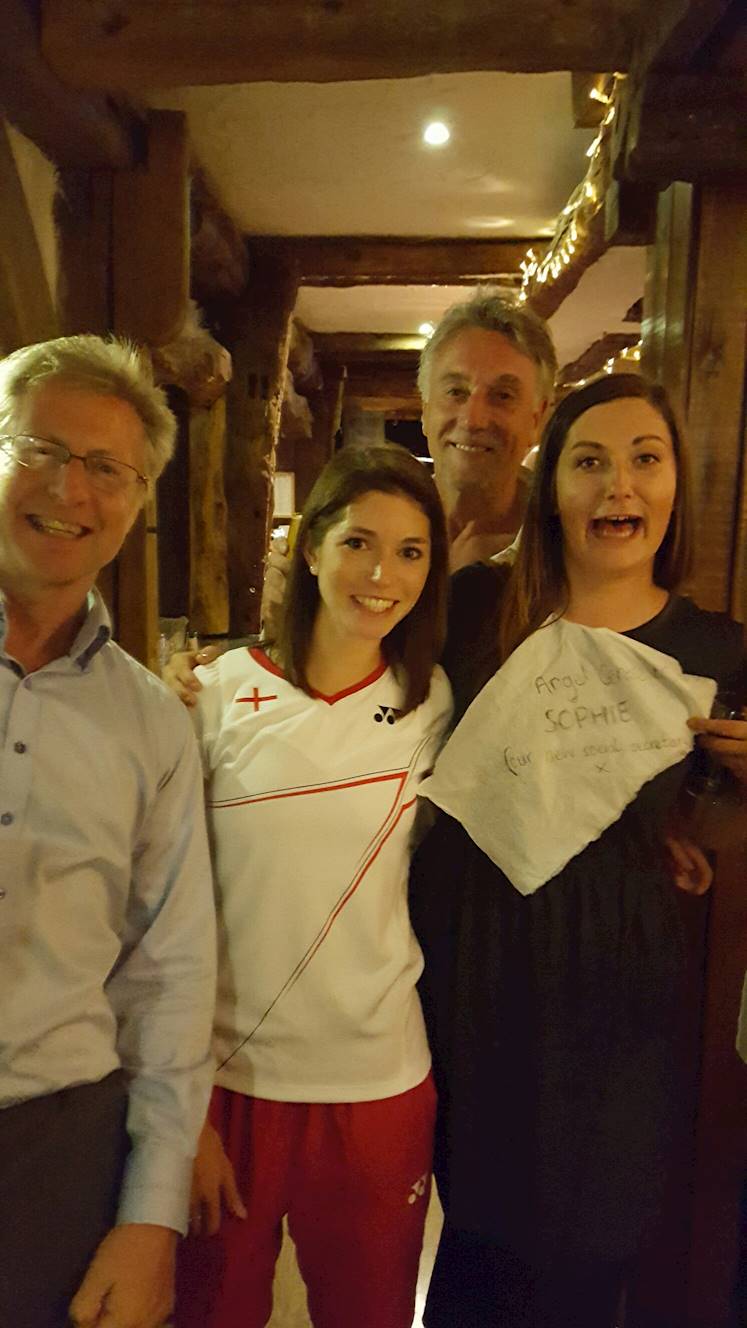 Angel
SOPHIE
(our new social secretary
x